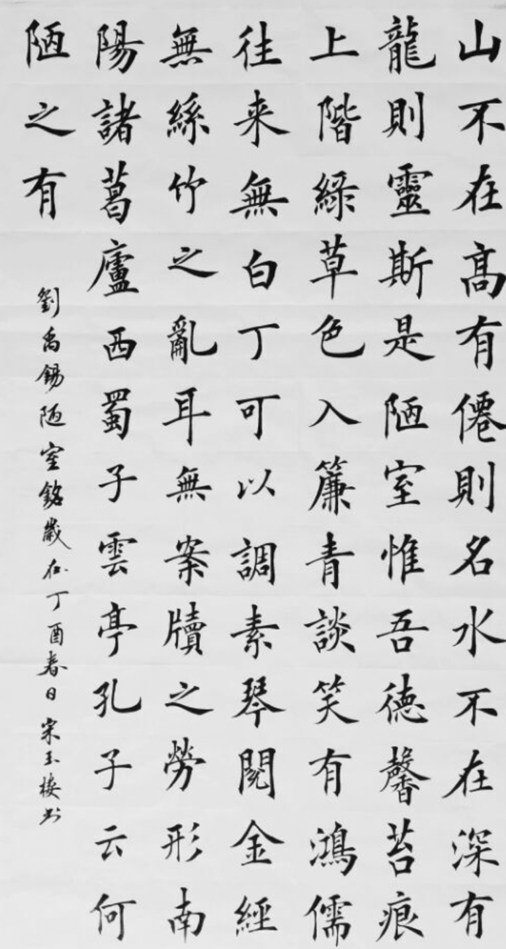 山不在高有僊則名水不在深有
龍則靈斯是陋室惟吾德馨苔痕
上階綠草色入簾青談笑有鴻儒
往来無白丁可以調素琴閱金經
無絲竹之亂耳無案牘之勞形南
陽諸葛廬西蜀子雲亭孔子云何
陋之有
劉禹錫陋室銘歲在丁酉春日宋玉